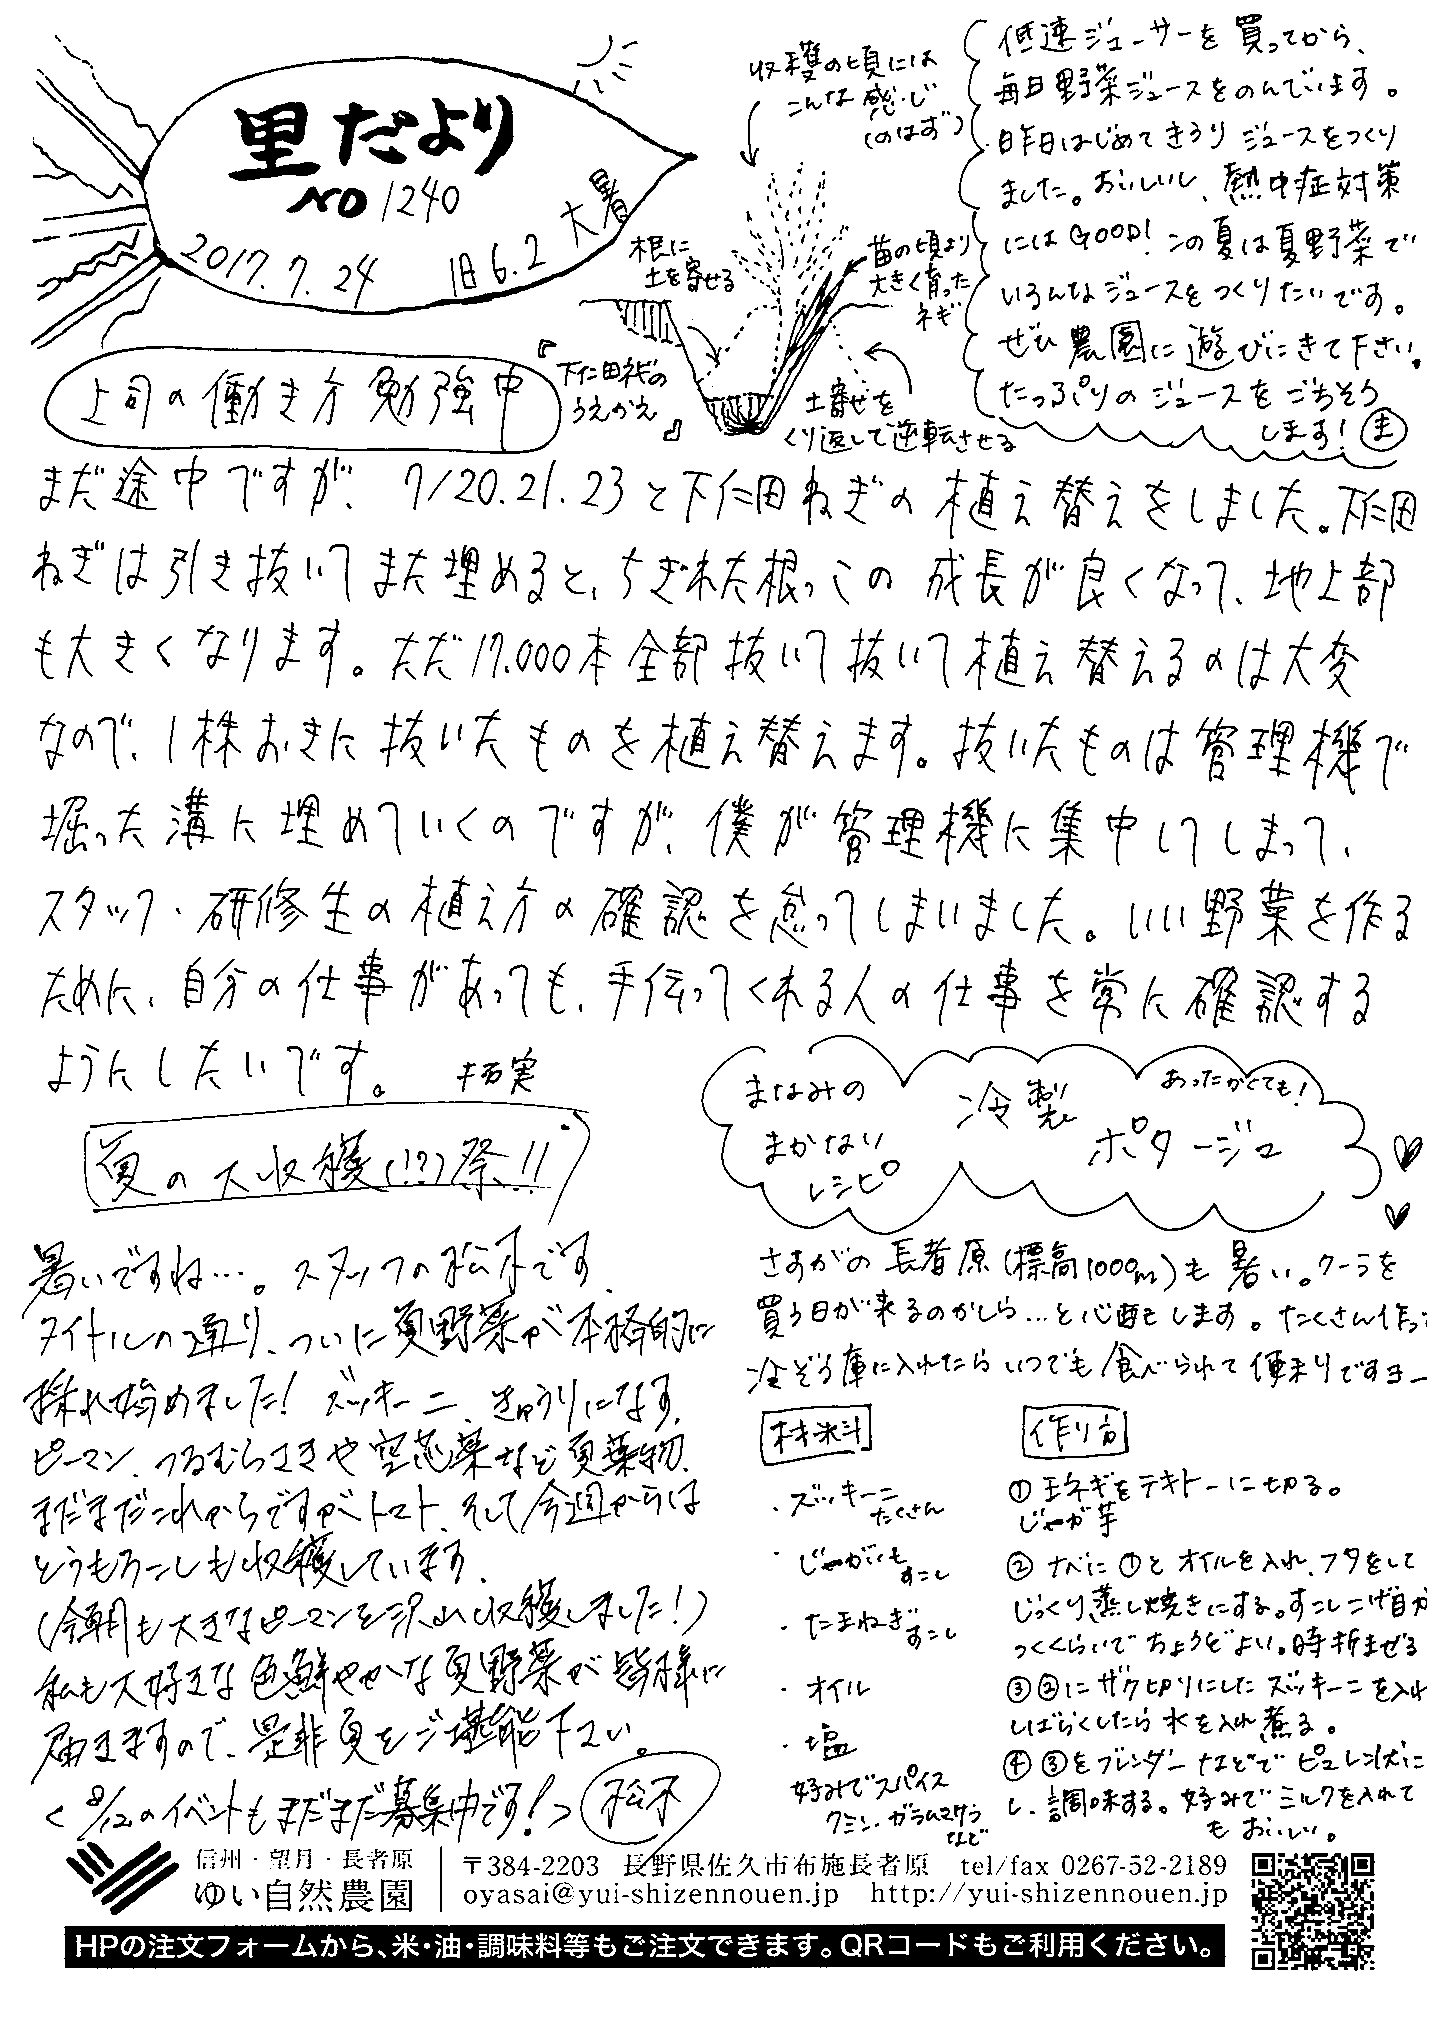 里だより
NO 1240
2017.7.24 旧6.2 大暑
収穫の頃には
こんな感じ
(のはず)
根に
土を寄せる
苗の頃より
大きく育った
ネギ
『下仁田ネギの
うえかえ』
土寄せを
くり返して逆転させる
低速ジューサーを買ってから、
毎日野菜ジュースをのんでいます。
昨日はじめてきうりジュースをつくり
ました。おいしいし、熱中症対策
にはGOOD! この夏は夏野菜で
いろんなジュースをつくりたいです。
ぜひ農園に遊びにきて下さい。
たっぷりのジュースをごちそう
します! ま
上司の働き方勉強中
まだ途中ですが、7/20.21.23と下仁田ねぎの植え替えをしました。下仁田
ねぎは引き抜いてまた埋めると、ちぎれた根っこの成長が良くなって、地上部
も大きくなります。ただ17.000本全部抜いて抜いて植え替えるのは大変
なので、1株おきに抜いたものを植え替えます。抜いたものは管理機で
堀った溝に埋めていくのですが、僕が管理機に集中してしまって、
スタッフ・研修生の植え方の確認を怠ってしまいました。いい野菜を作る
ために、自分の仕事があっても、手伝ってくれる人の仕事を常に確認する
ようにしたいです。 拓実
夏の大収穫(!?)祭!!
暑いですね…。スタッフの松本です。
タイトルの通り、ついに夏野菜が本格的に
採れ始めました! ズッキーニ、きゅうりになす、
ピーマン、つるむらさきや空芯菜など夏葉物、
まだまだこれからですがトマト、そして今週からは
とうもろこしも収穫しています。
(今朝も大きなピーマンを沢山収穫しました!)
私も大好きな色鮮やかな夏野菜が皆様に
届きますので、是非夏をご堪能下さい。
<8/12のイベントもまだまだ募集中です!> 松本
まなみの
まかない
レシピ
冷製
あったかくても!
ポタージュ
さすがの長者原(標高1000m)も暑い。クーラを
買う日が来るのかしら…と心配もします。たくさん作っ
冷ぞう庫に入れたらいつでも食べられて便利ですヨー
材料
・ズッキーニ
たくさん
・じゃがいも
すこし
・たまねぎ
すこし
・オイル
・塩
好みでスパイス
クミン・ガラムマサラ
など
作り方
①玉ネギをテキトーに切る。
じゃが芋
②ナベに①とオイルを入れ、フタをして
じっくり蒸し焼きにする。すこしこげ目が
つくくらいでちょうどよい。時折まぜる
③②にザク切りにしたズッキーニを入れ
しばらくしたら水を入れ煮る。
④③をブレンダーなどでピュレ状に
し、調味する。好みでミルクを入れて
もおいしい。
信州・望月・長者原
ゆい自然農園
〒384-2203 長野県佐久市布施長者原 tel/fax 0267-52-2189
oyasai@yui-shizennouen.jp http://yui-shizennouen.jp
HPの注文フォームから、米・油・調味料等もご注文できます。QRコードもご利用ください。